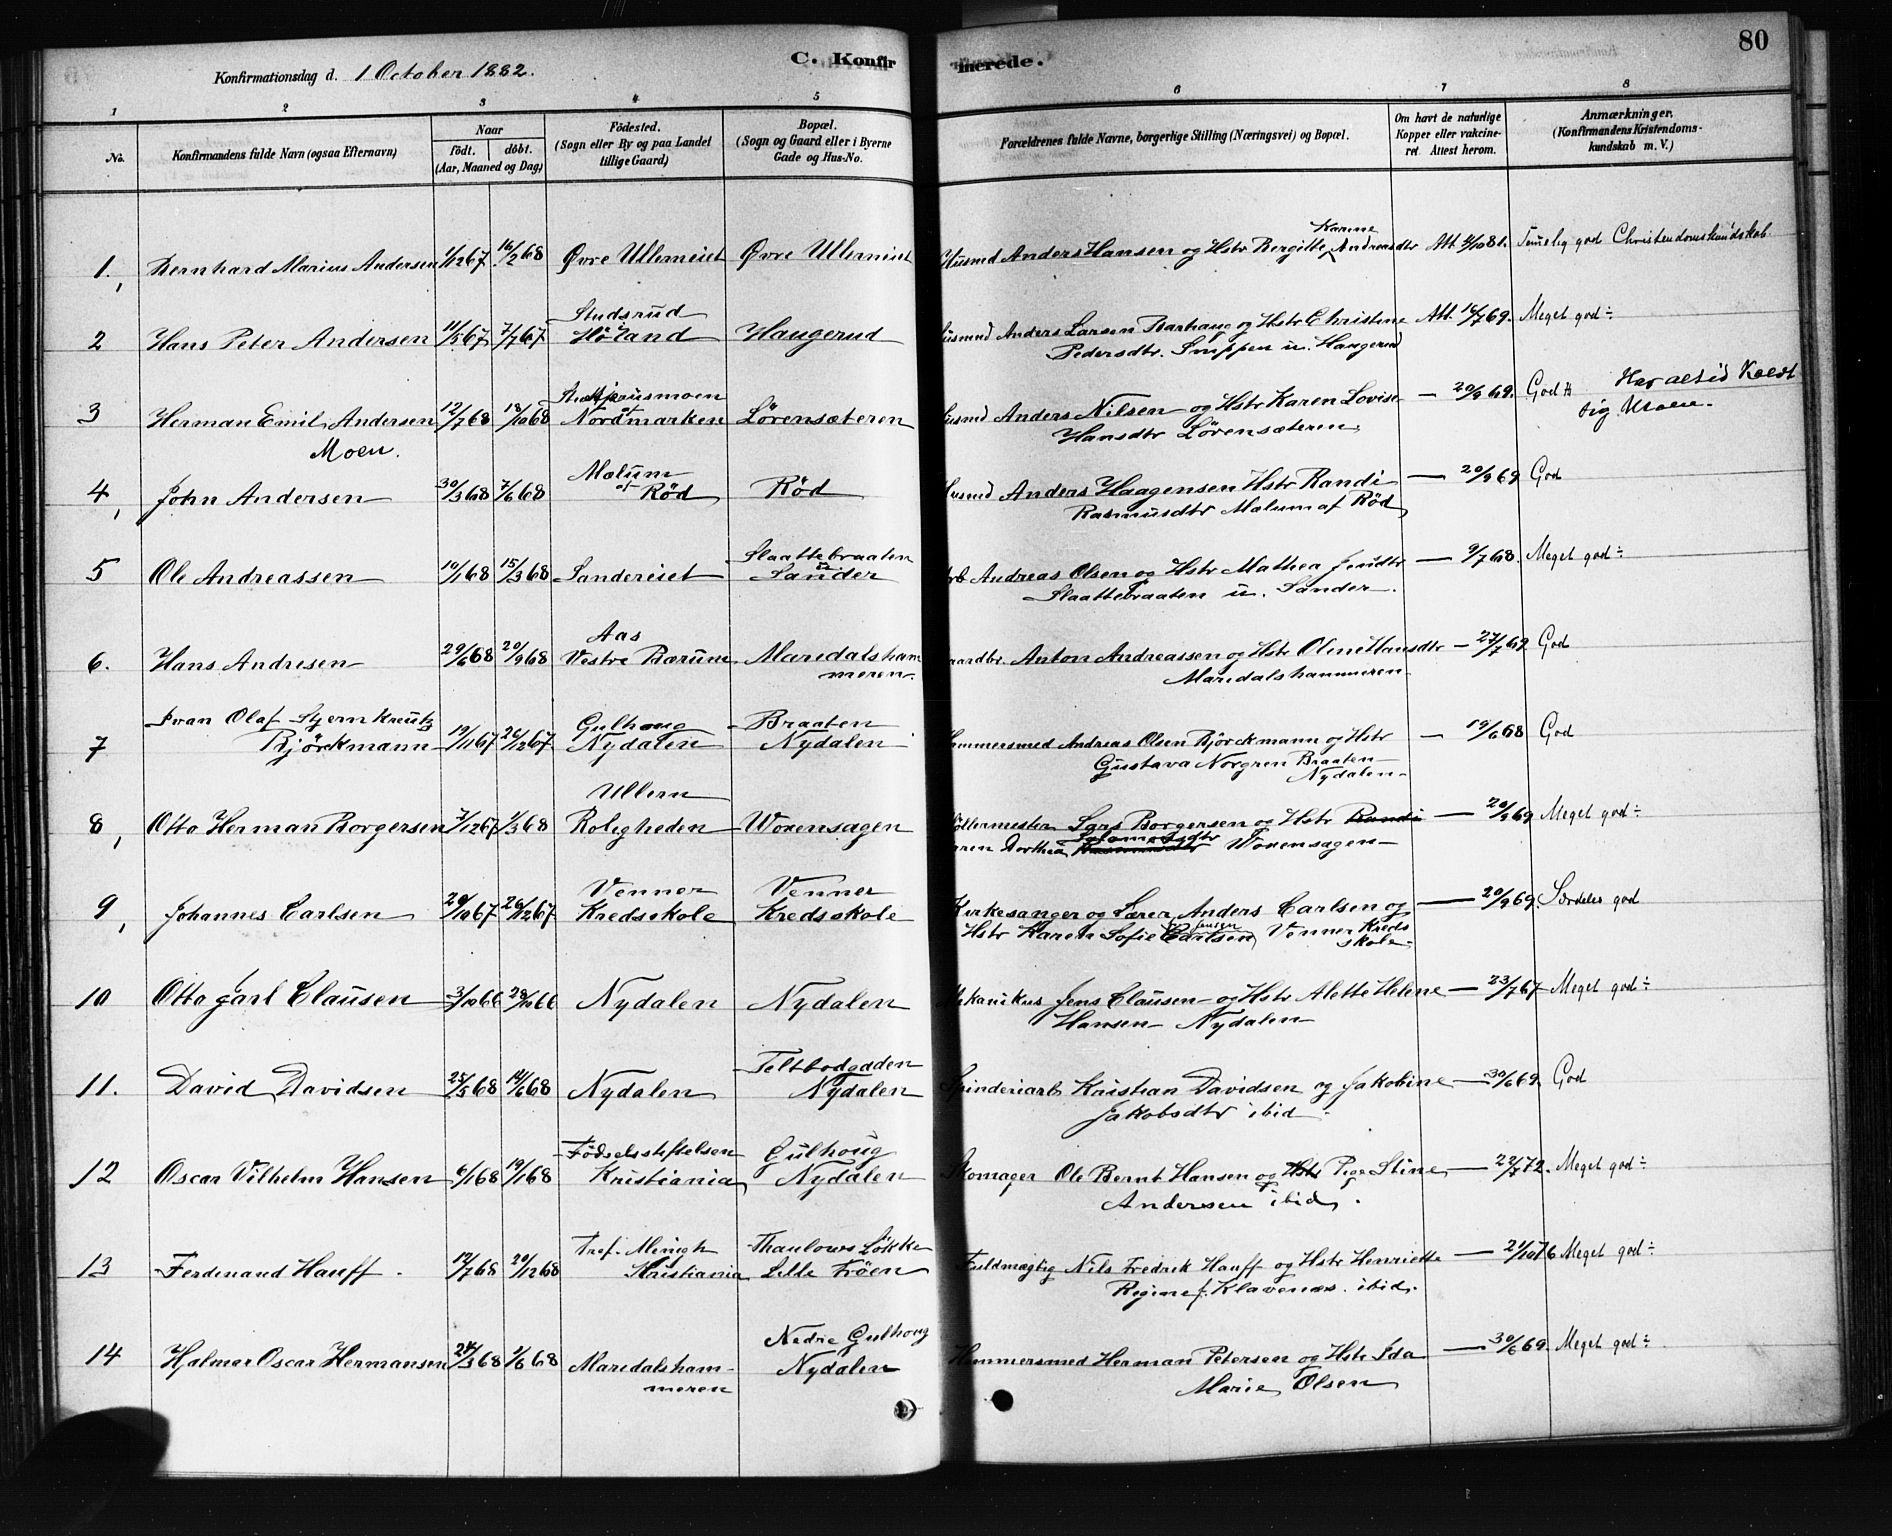 80
C. Konfirmerede.
Konfirmationsdag d. 1 October 1882.
1 2 3 4 5 6 7 8
No. Konfirmandens fulde Navn (ogsaa Efternavn) Naar födt. döbt. (Aar, Maaned og Dag) Födested. (Sogn eller By og paa Landet tillige Gaard) Bopæl. (Sogn og Gaard eller i Byerne Gade og Hus-No. Forældrenes fulde Navne, borgerlige Stilling (Næringsvei) og Bopæl. Om havt de naturlige Kopper eller vakcineret. Attest herom. Anmærkninger. (Konfirmandens Kristendomskundskab m. V.)
Karine
1, Bernhard Marius Andersen 1/12 67 16/2 68 Övre Ullerneiet Övre Ullerneiet Husmd Anders Hansen og Hstr Bergitte Andreasdtr Att. 81. Temelig god Christendomskundskab
Studsrud
2 Hans Peter Andersen 11/5 67 7/7 67 Höland Haugerud Husmd Anders Larsen Barhaug og Hstr Christine Att. 69. Meget god ÷
Pedersdtr. u. Haugerud
3 Herman Emil Andersen 12/7 68 18/10 68 Nordmarken Lörensæteren Husmd Anders Nilsen og Hstr Karen Lovise — 20/9 69. God Har altid Kaldt
Moen. Hansdtr Lörensæteren, sig Moen.
Mælum
4, John Andersen 30/3 68 7/6 68 af Röd Röd Husmd Anders Haagensen Hstr Randi — 20/9 69 God
Rasmusdtr Mælum af Röd
Slaattebraaten
5 Ole Andreassen 19/1 68 15/3 68 Sandereiet Sander Andreas Olsen og Hstr Mathea — 9/7 68. Meget god ÷
Slaattebraaten u. Sander.
Aas
6. Hans Andresen 29/6 68 20/9 68 Vestre Bærum Maridalsham Gaardbr. Anton Andreassen og Hstr Oline Hansdtr — 27/7 69 God
meren. Maridalshammeren
Ivan Olaf Stjernkreutz Gulhaug Braaten
7 Björckmann 19/11 67 26/12 67 Nydalen Nydalen Hammersmed Andreas Olsen Björckmann og Hstr — 19/6 68 God
Gustava Norgren Braaten
Nydalen
Ullern
8, Otto Herman Borgersen 7/12 67 1/3 68 Roligheden Woxensagen Möllermester Lars Borgersen og Hstr Randi — 20/9 69 Meget god ÷
Karen Dorthea Salomonsdtr Rasmusdtr Woxensagen
Venner Venner
9, Johannes Carlsen 29/10 67 26/12 67 Kredsskole Kredsskole Kirkesanger og Lærer Anders Carlsen og — 20/9 69. Særdeles god
Hstr Karen Sofie Carlsen Jensen Venner Kreds
skole
10 Otto Carl Clausen 3/10 66 28/10 66 Nydalen Nydalen Mekanikus Jens Clausen og Hstr Alette Helene — 23/7 67 Meget god ÷
Hansen Nydalen
Teltbodgaden
11. David Davidsen 25/5 68 14/6 68 Nydalen Nydalen Spinderiarb Kristian Davidsen og Jakobine — 30/6 69. God
Jakobsdtr ibid
Födselsstiftelsen Gulhoug
12 Oscar Vilhelm Hansen 6/1 68 19/1 68 Kristiania Nydalen Skomager Ole Bernt Hansen og Hstr Pige Stine — 22/7 72. Meget god ÷
Andersen ibid.
Tref. Menigh Thaulows Lökke
13 Ferdinand Hauff. 12/7 68 20/12 68 Kristiania Lille Fröen Fuldmægtig Nils Fredrik Hauff og Hstr Henriette — 21/10 76 Meget god ÷
Regine f. Klavenæs. ibid.
Nedre Gulhoug
14 Hjalmar Oscar Hermansen 24/3 68 1/6 68 Maridalsham- Nydalen Hammersmed Herman Petersen og Hstr Ida — 30/6 69. Meget god ÷
meren Marie Olsen